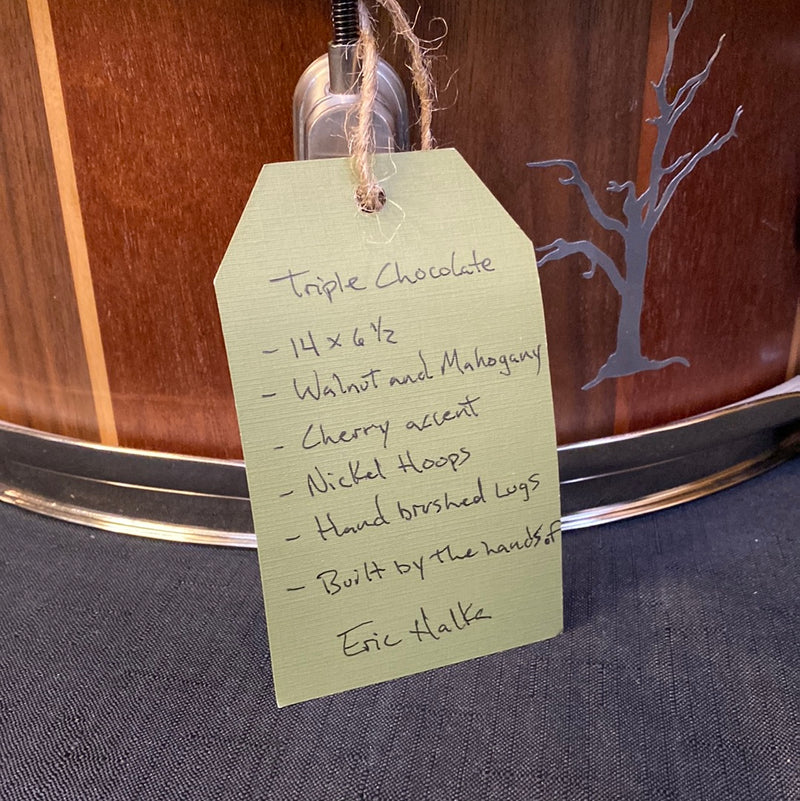 Triple Chocolate
- 14 x 6 ½
- Walnut and Mahogany
- Cherry accent
- Nickel Hoops
- Hand brushed Lugs
- Built by the hands of
Eric Halke